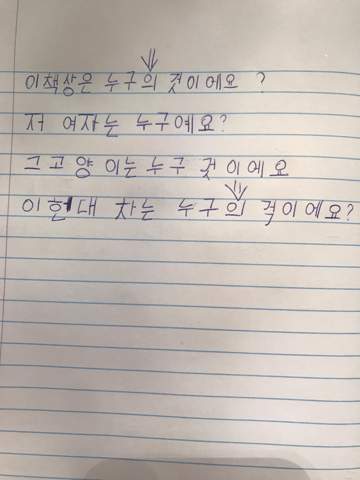 이책상은 누구의 것이에요 ?
저 여자는 누구예요?
그고양이는누구 것 이에요
이현대 차는 누구의 것이에요?